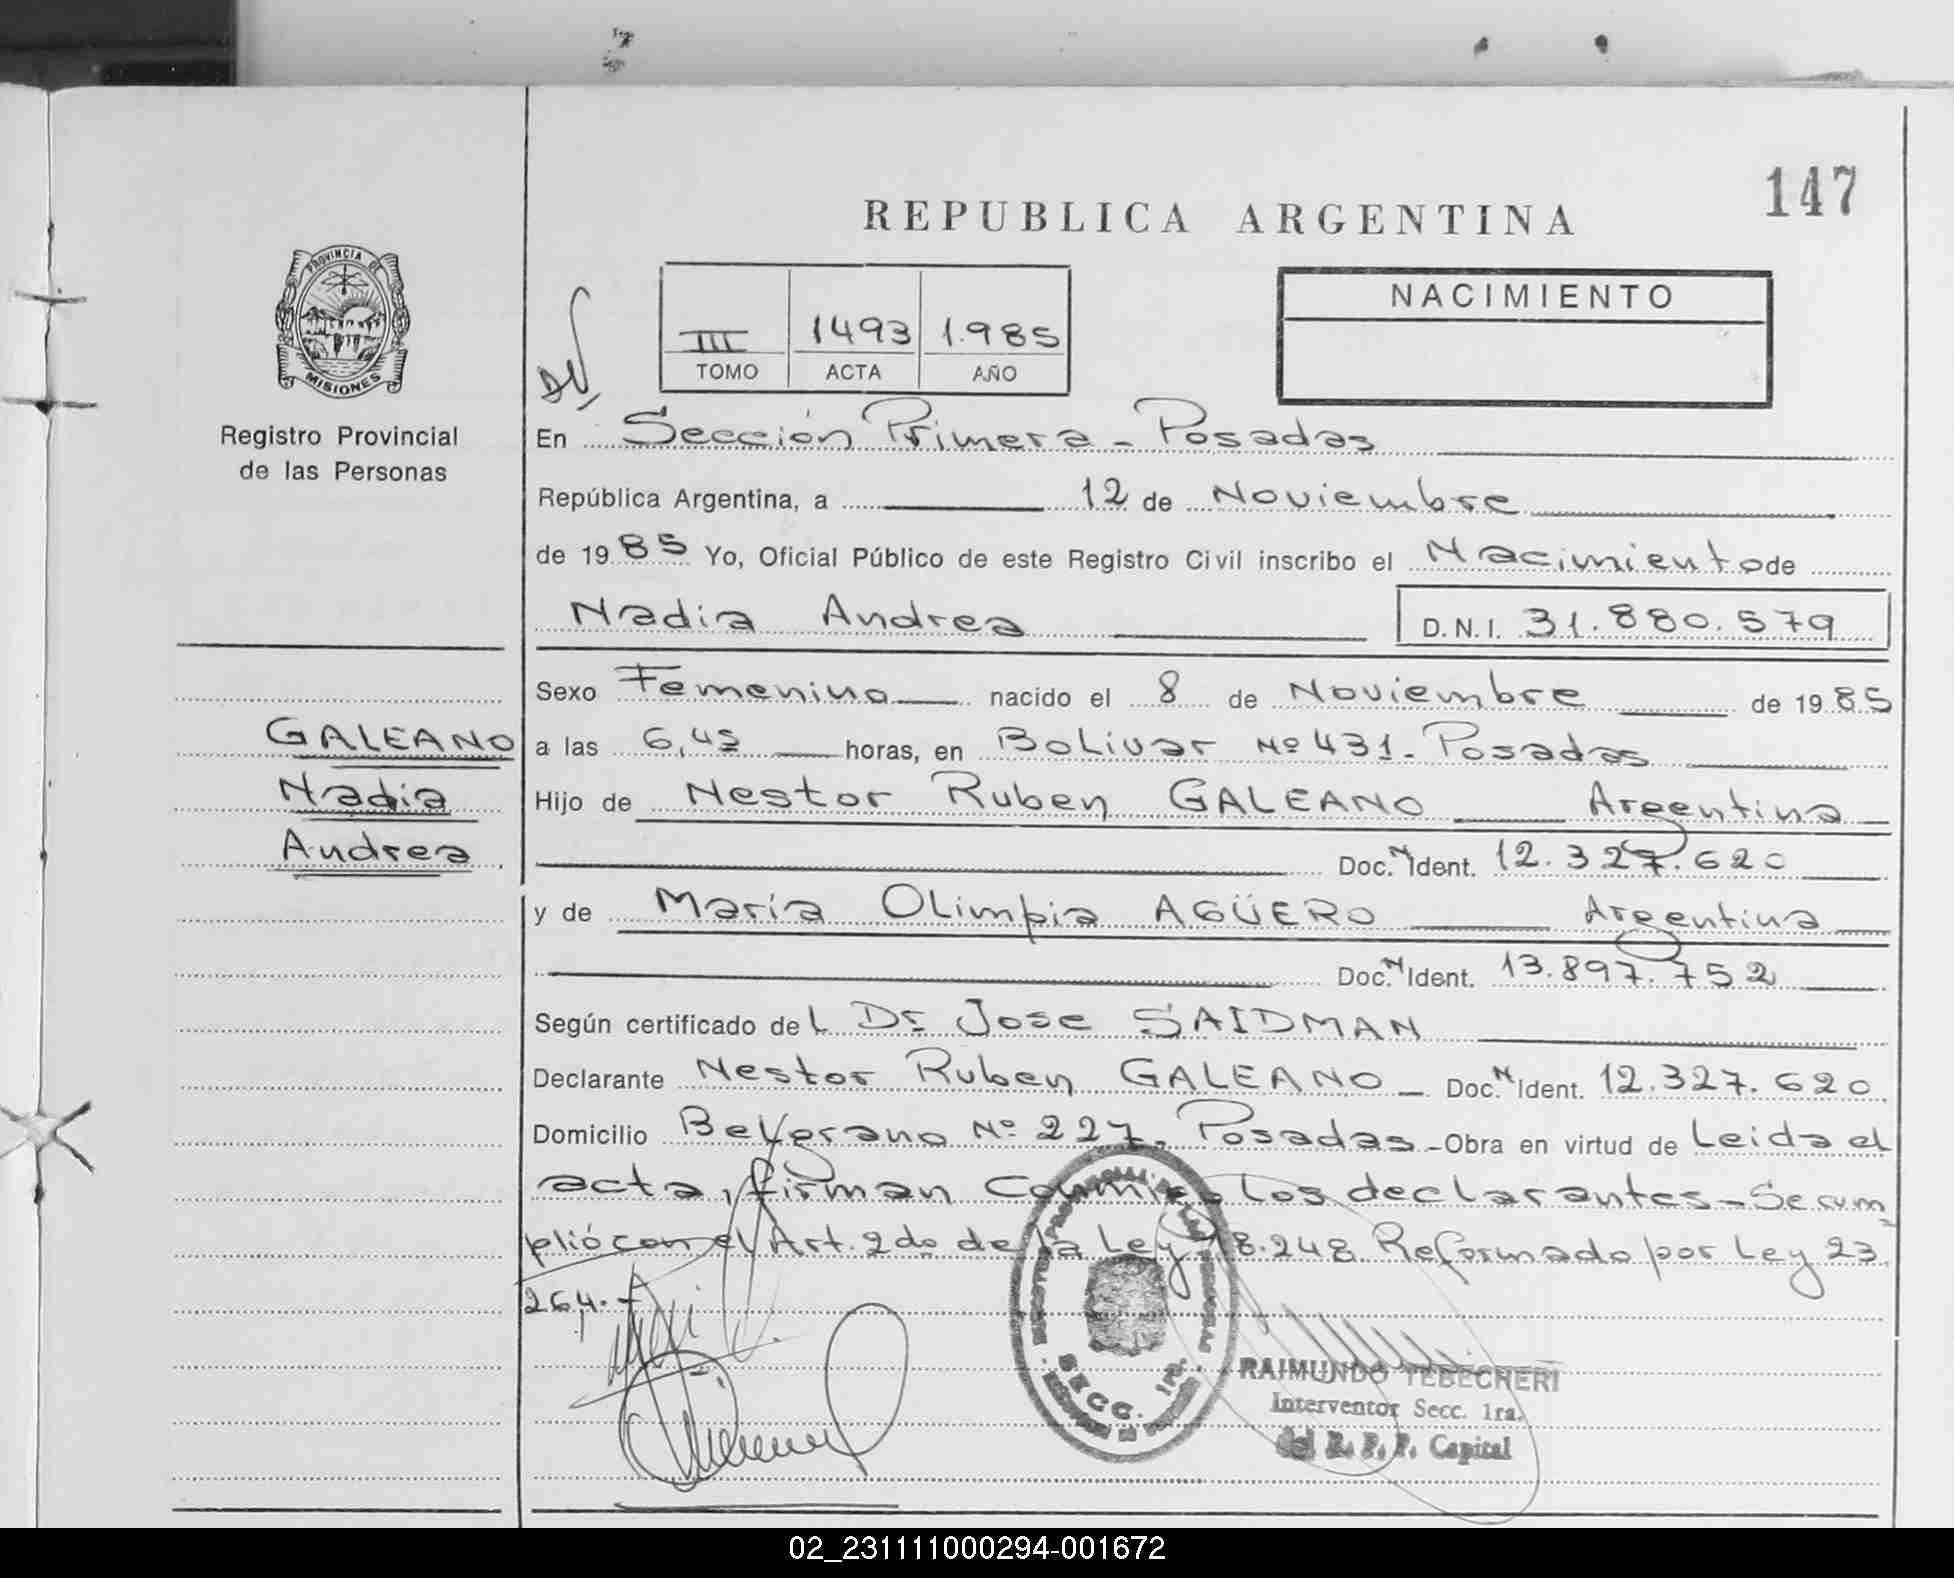 147
REPUBLICA ARGENTINA
PROVINCIA DE
MISIONES
Registro Provincial
de las Personas
III 1493 1.985
TOMO ACTA AÑO
NACIMIENTO
En Sección Primera - Posadas
República Argentina, a 12 de Noviembre
de 1985 Yo, Oficial Público de este Registro Civil inscribo el Nacimiento de
Nadia Andrea D.N.I. 31.880.579
Sexo Femenino nacido el 8 de Noviembre de 1985
GALEANO
Nadia
Andrea
a las 6,45 horas, en Bolivar Nº 431 - Posadas
Hijo de Nestor Ruben GALEANO Argentina
Doc. N Ident. 12.327.620
y de María Olimpia AGÜERO Argentina
Doc. N Ident. 13.897.752
Según certificado del Dr Jose SAIDMAN
Declarante Nestor Ruben GALEANO - Doc. N Ident. 12.327.620
Domicilio Belgrano Nº 227. Posadas - Obra en virtud de Leida el
acta, firman conmigo los declarantes - Se cum
plió con el Art. 2do de la Ley 18.248 Reformado por Ley 23.
264. -
SECC. 1ra.
RAIMUNDO TEBECHERI
Interventor Secc. 1ra.
del R. P. P. Capital
02_231111000294-001672